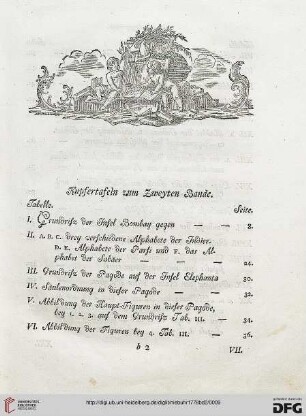 Kupfertafeln zum Zweyten Bande.
Tabelle. Seite.
I. Grundriß der Insel Bombay gegen — — 2.
II. A. B. C. drey verschiedene Alphabete der Indier.
D. E. Alphabete der Parsi und F. das Al-
phabet der Sabäer — — 24.
III. Grundriß der Pagode auf der Insel Elephanta 30.
IV. Säulenordnung in dieser Pagode — — 32.
V. Abbildung der Haupt-Figuren in dieser Pagode,
bey 1. 2. 3. auf dem Grundriß Tab. III. — 34.
VI. Abbildung der Figuren bey 4. Tab. III. — 36.
b 2 VII.
http://digi.ub.uni-heidelberg.de/diglit/niebuhr1778bd2/0009
DFG